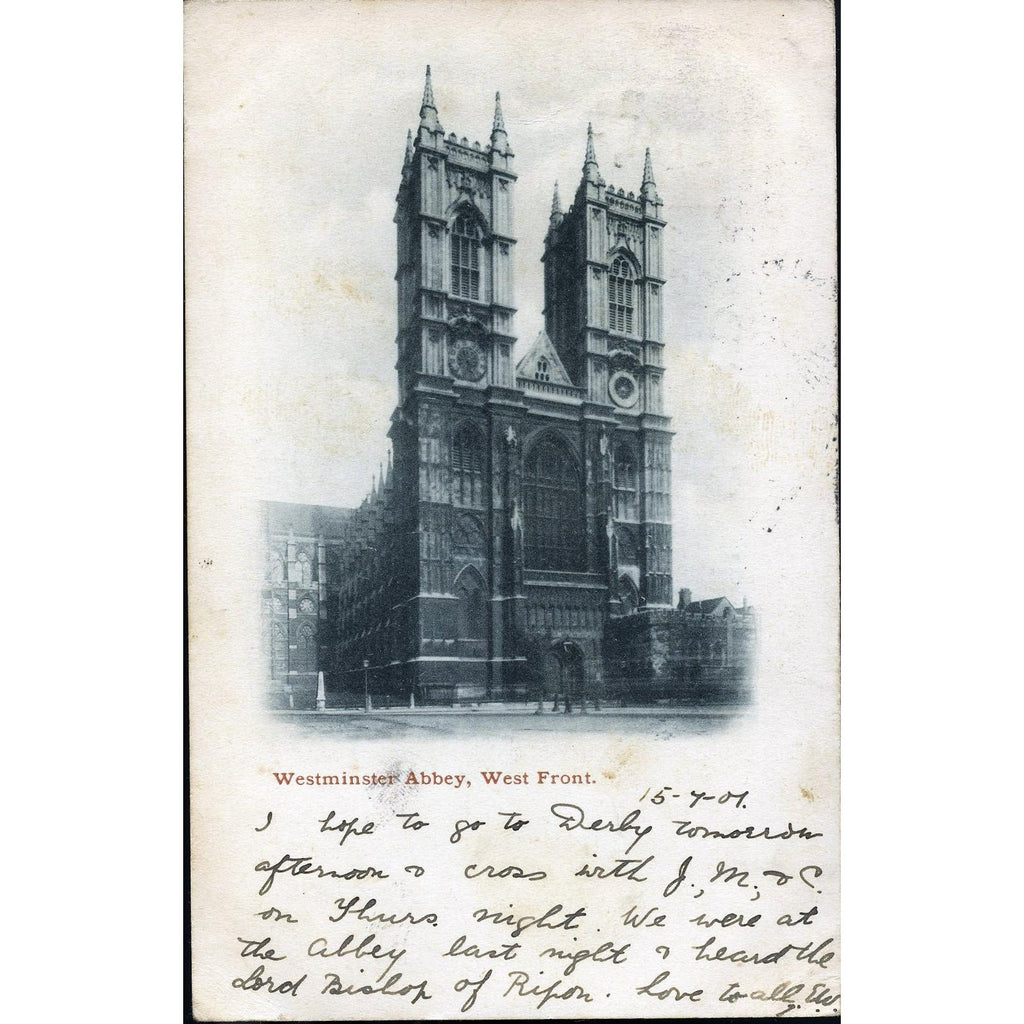 Westminster Abbey, West Front.
15-7-01.
I hope to go to Derby tomorrow
afternoon & cross with J., M., & C.
on Thurs. night. We were at
the Abbey last night & heard the
Lord Bishop of Ripon. Love to all,